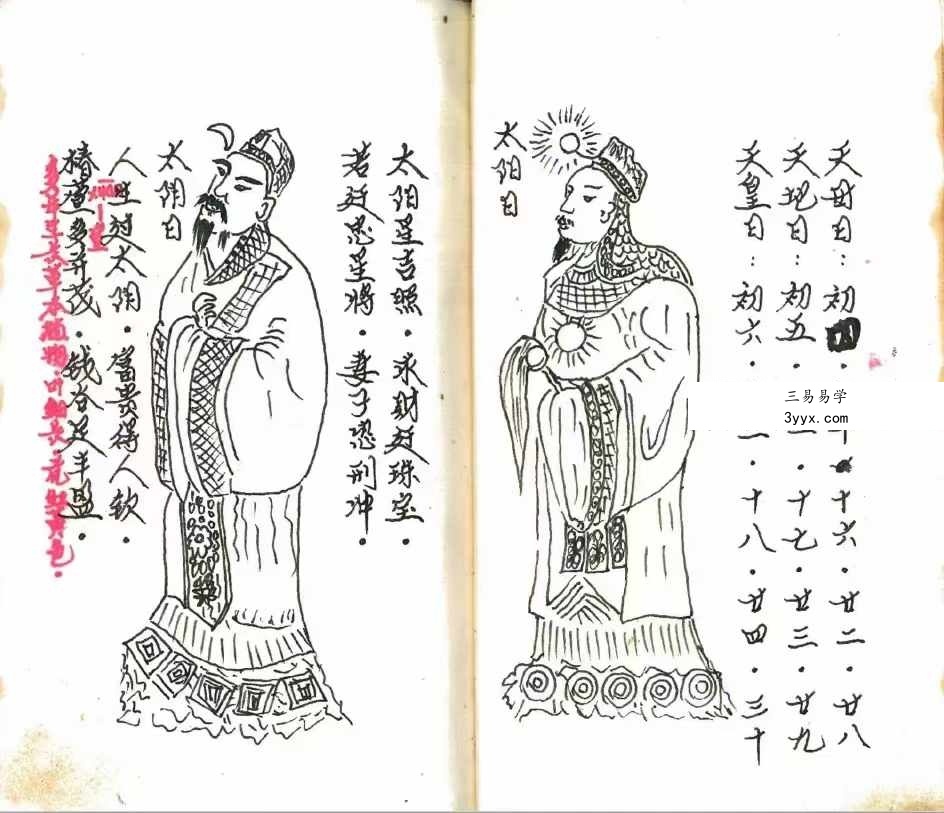 天母日：初四．十．十六．廿二．廿八
天地日：初五．一．十七．廿三．廿九
天皇日：初六．二．十八．廿四．三十
三易易学
3yyx.com
太阳日
太阳星吉照．求财珠宝．
若恶星将．妻子恐刑冲．
太阴日
人生太阴．富贵得人钦．
椿萱多并茂．钱谷足丰盈．
多年生长草本植物叶细长．花黄色．